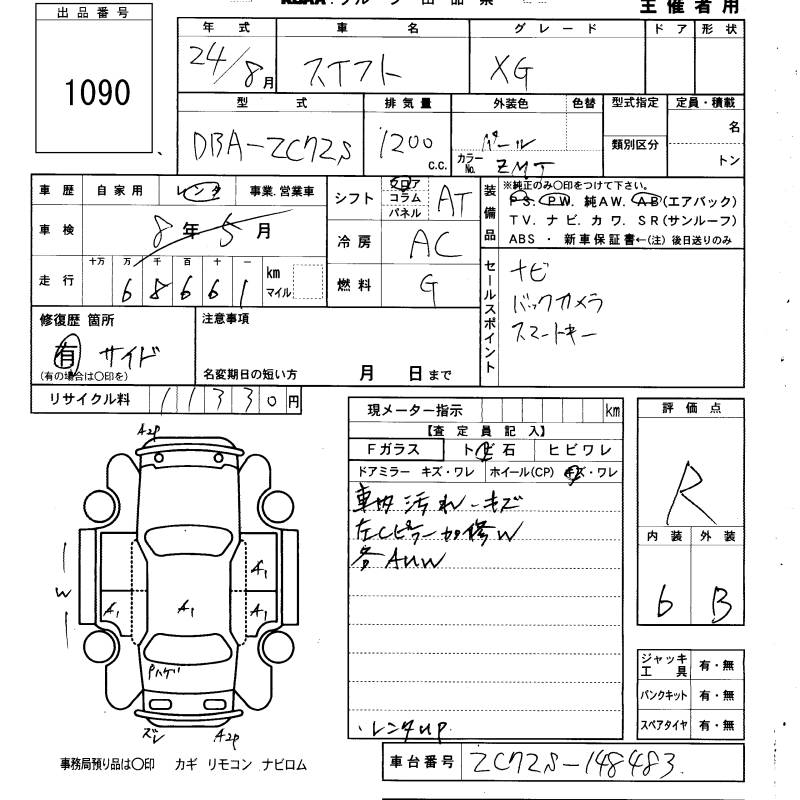 主催者用
出品番号
1090
年式 車名 グレード ドア 形状
24/8月 スイフト XG
型式 排気量 外装色 色替 型式指定 定員・積載
DBA-ZC72S 1200 c.c. パール カラーNo. ZMT 類別区分 名 トン
車歴 自家用 レンタ 事業.営業車
車検 8年5月
走行 十万 万 千 百 十 一 km マイル
6 8 6 6 1
シフト フロア コラム パネル AT
冷房 AC
燃料 G
装備品 ※純正のみ〇印をつけて下さい。
PS. PW. 純AW. AB(エアバック)
TV. ナビ. カワ. SR(サンルーフ)
ABS ・ 新車保証書←(注) 後日送りのみ
セールスポイント
ナビ
バックカメラ
スマートキー
修復歴 箇所
有 サイド
(有の場合は〇印を)
注意事項
名変期日の短い方 月 日まで
リサイクル料 11330円
現メーター指示 km
【査定員記入】
Fガラス トビ石 ヒビワレ
ドアミラー キズ・ワレ ホイール(CP) キズ・ワレ
車内汚れ-キズ
左Cピラー加修W
各AUW
・レンタup.
評価点
R
内装 外装
6 B
ジャッキ工具 有・無
パンクキット 有・無
スペアタイヤ 有・無
A2P
A1
A1 A1 A1
W
Pハゲ
ズレ A2P
事務局預り品は〇印 カギ リモコン ナビロム
車台番号 ZC72S-148483